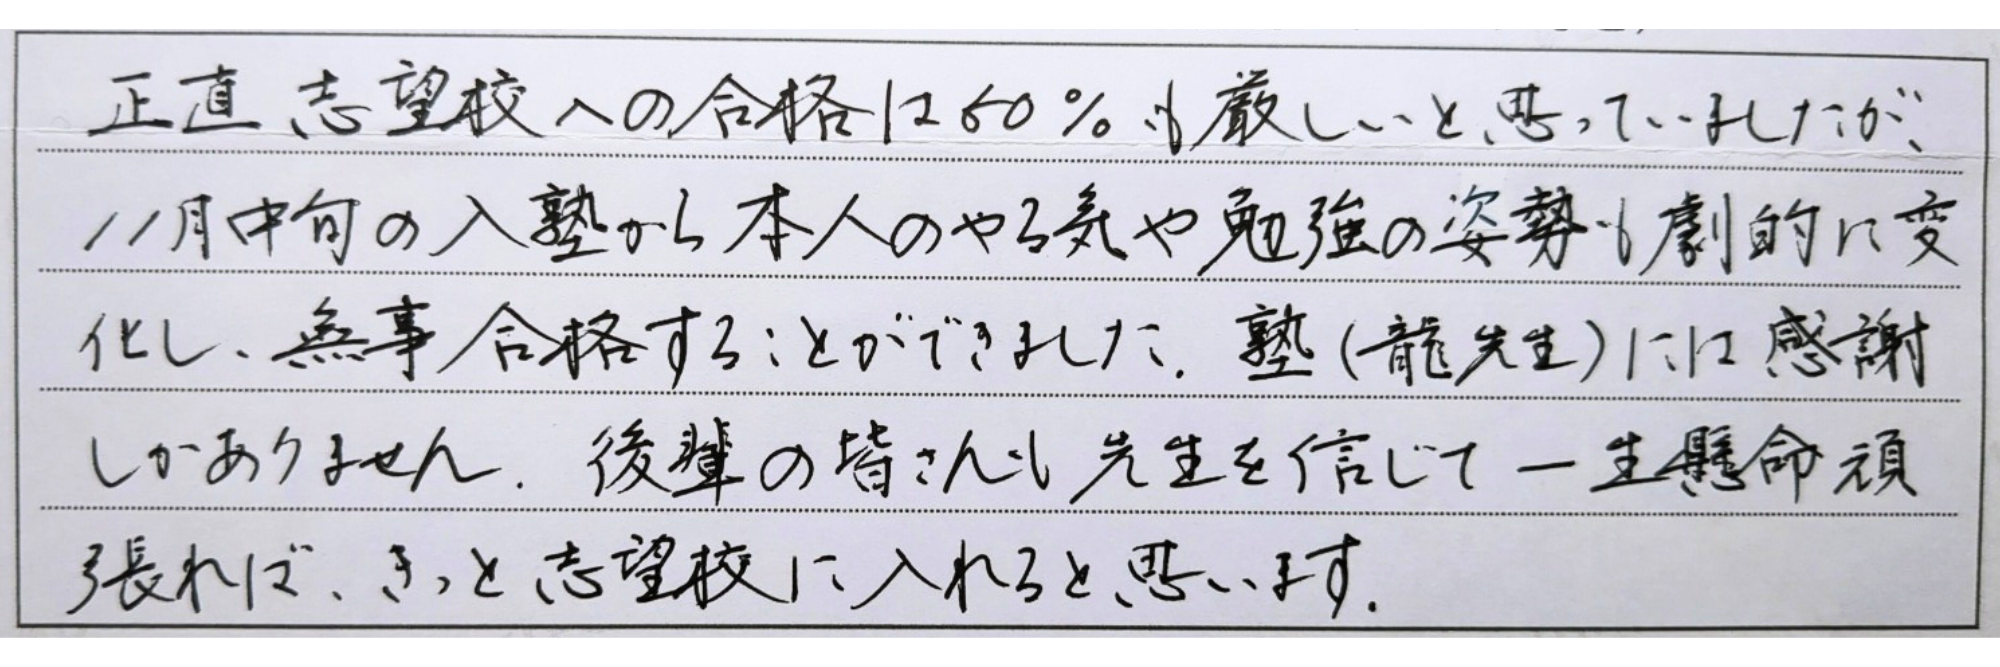 正直志望校への合格は50%も厳しいと思っていましたが、
11月中旬の入塾から本人のやる気や勉強の姿勢も劇的に変
化し、無事合格することができました。塾(龍先生)には感謝
しかありません。後輩の皆さんも先生を信じて一生懸命頑
張れば、きっと志望校に入れると思います。